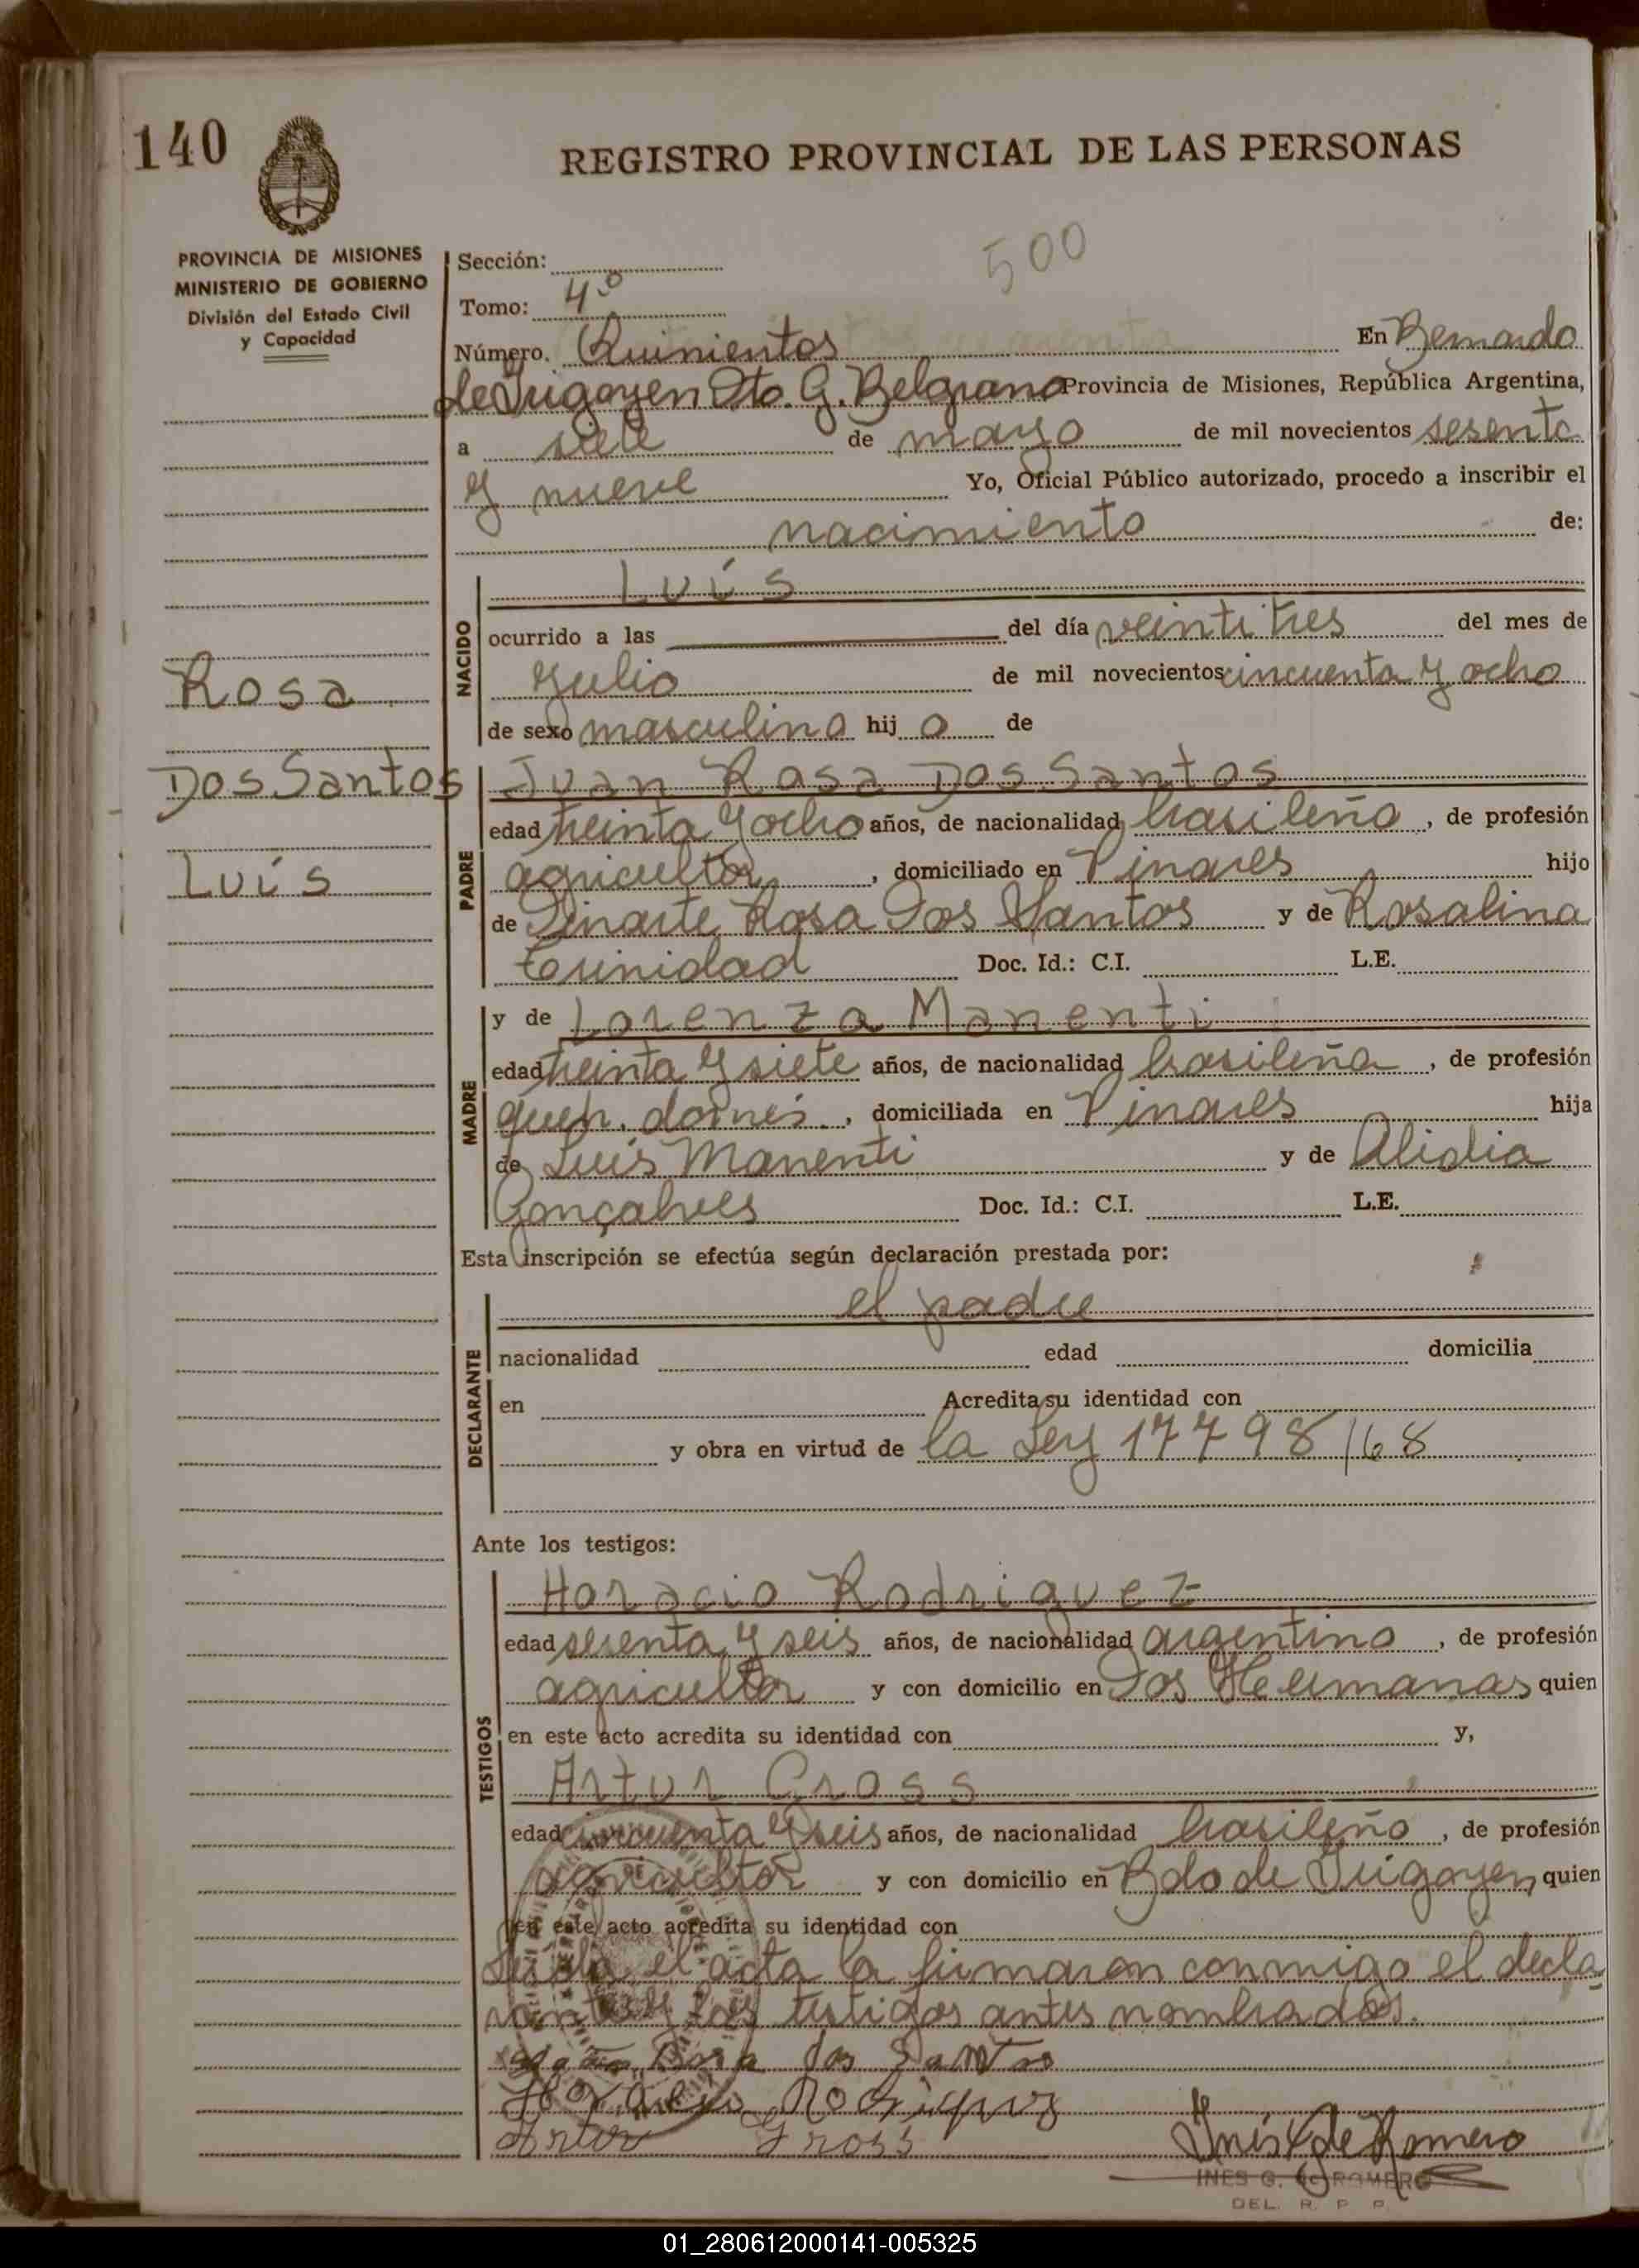 140
REGISTRO PROVINCIAL DE LAS PERSONAS
PROVINCIA DE MISIONES
MINISTERIO DE GOBIERNO
División del Estado Civil
y Capacidad
500
Sección:
Tomo: 4º
Número. Quinientos En Bernardo
de Irigoyen Dto. G. Belgrano Provincia de Misiones, República Argentina,
a siete de mayo de mil novecientos sesenta
y nueve Yo, Oficial Público autorizado, procedo a inscribir el
nacimiento de:
Rosa
Dos Santos
Luís
NACIDO
Luís
ocurrido a las del día veintitres del mes de
Julio de mil novecientos cincuenta y ocho
de sexo masculino hij o de
PADRE
Juan Rosa Dos Santos
edad treinta y ocho años, de nacionalidad brasileño, de profesión
agricultor, domiciliado en Pinares hijo
de Dinarte Rosa Dos Santos y de Rosalina
Trinidad Doc. Id.: C.I. L.E.
MADRE
y de Lorenza Manenti
edad treinta y siete años, de nacionalidad brasileña, de profesión
queh. domés., domiciliada en Pinares hija
de Luis Manenti y de Alidia
Gonçalves Doc. Id.: C.I. L.E.
Esta inscripción se efectúa según declaración prestada por:
DECLARANTE
el padre
nacionalidad edad domicilia
en Acredita su identidad con
y obra en virtud de la Ley 17798/68
Ante los testigos:
TESTIGOS
Horacio Rodriguez
edad sesenta y seis años, de nacionalidad argentino, de profesión
agricultor y con domicilio en Dos Hermanas quien
en este acto acredita su identidad con y,
Artur Gross
edad cincuenta y seis años, de nacionalidad brasileño, de profesión
agricultor y con domicilio en Bdo de Irigoyen, quien
en este acto acredita su identidad con
Leída el acta la firmaron conmigo el decla-
rante y los testigos antes nombrados.
Rosa dos Santos
Horacio Rodriguez
Artur Gross
Inés G de Romero
INES G. de ROMERO
DEL. R. P. P.
01_280612000141-005325